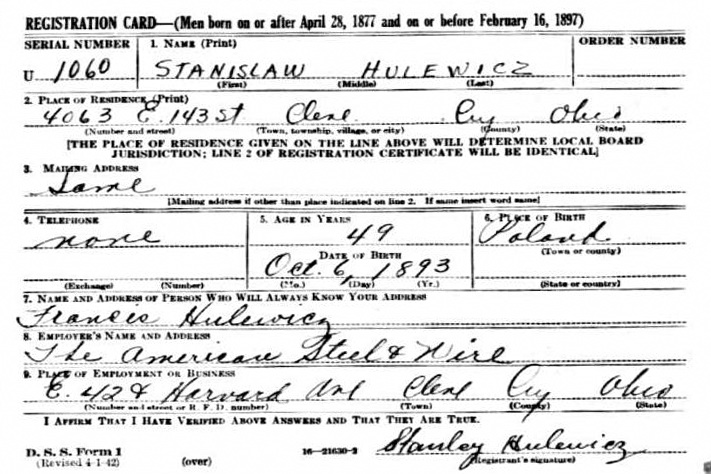 REGISTRATION CARD—(Men born on or after April 28, 1877 and on or before February 16, 1897)
SERIAL NUMBER 1. NAME (Print) ORDER NUMBER
U 1060 STANISLAW HULEWICZ
(First) (Middle) (Last)
2. PLACE OF RESIDENCE (Print)
4063 E. 143 St Cleve. Cuy Ohio
(Number and street) (Town, township, village, or city) (County) (State)
[THE PLACE OF RESIDENCE GIVEN ON THE LINE ABOVE WILL DETERMINE LOCAL BOARD
JURISDICTION; LINE 2 OF REGISTRATION CERTIFICATE WILL BE IDENTICAL]
3. MAILING ADDRESS
Same
[Mailing address if other than place indicated on line 2. If same insert word same]
4. TELEPHONE 5. AGE IN YEARS 6. PLACE OF BIRTH
none 49 Poland
DATE OF BIRTH (Town or county)
Oct. 6, 1893
(Exchange) (Number) (Mo.) (Day) (Yr.) (State or country)
7. NAME AND ADDRESS OF PERSON WHO WILL ALWAYS KNOW YOUR ADDRESS
Frances Hulewicz
8. EMPLOYER'S NAME AND ADDRESS
The American Steel & Wire
9. PLACE OF EMPLOYMENT OR BUSINESS
E. 42 & Harvard Ave Cleve Cuy Ohio
(Number and street or R. F. D. number) (Town) (County) (State)
I AFFIRM THAT I HAVE VERIFIED ABOVE ANSWERS AND THAT THEY ARE TRUE.
D. S. S. Form 1 16—21630-2 Stanley Hulewicz
(Revised 4-1-42) (over) (Registrant's signature)